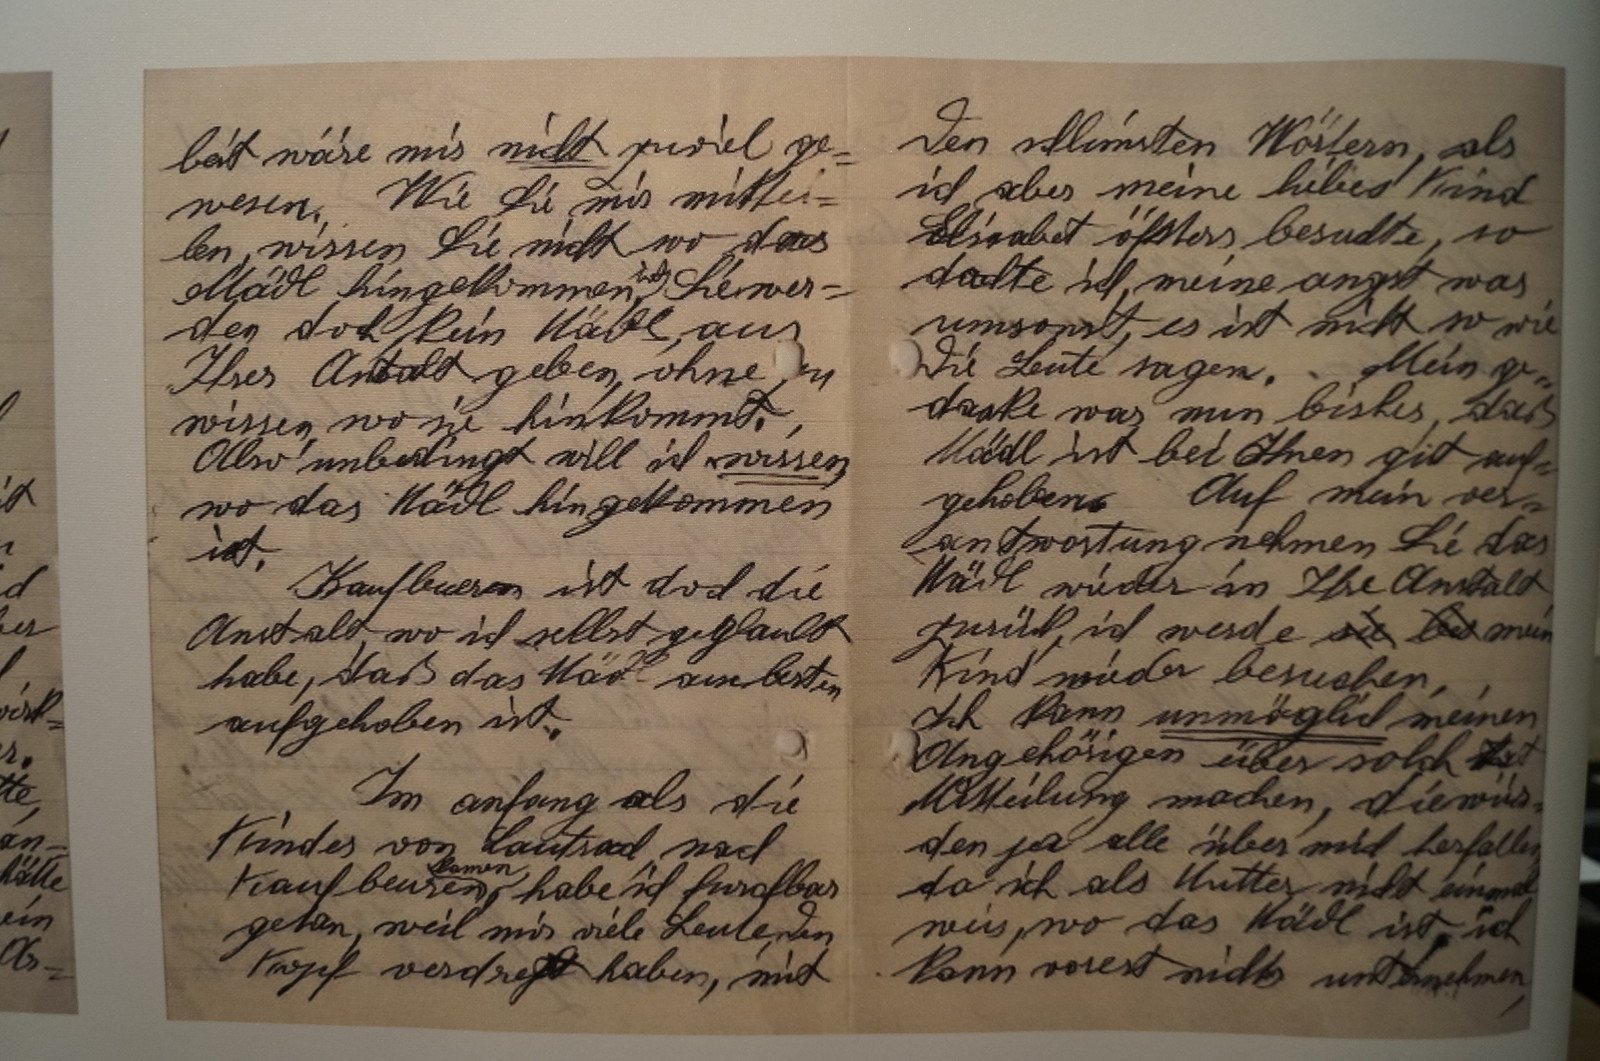 beit wäre mir nicht zuviel ge=
wesen. Wie Sie mir mittei=
len, wissen Sie nicht wo das
Mädl hingekommen ist, Sie wer=
den doch kein Mädl, aus
Ihrer Anstalt geben, ohne zu
wissen, wo sie hinkommt.
Also unbedingt will ich wissen,
wo das Mädl hingekommen
ist.
Kaufbueren ist doch die
Anstalt, wo ich selbst geglaubt
habe, daß das Mädl am besten
aufgehoben ist.
Im anfang als die
Kinder von Lautrach nach
Kaufbeuren kamen, habe ich furchtbar
getan, weil mir viele Leute, den
Kopf verdreht haben, mit
Den schlimsten Wörtern, als
ich aber meine liebes Kind
Elisabet öfsters besuchte, so
dachte ich, meine angst war
umsonst, es ist nicht so wie
die Leute sagen. Mein ge=
danke war nun bisher, daß
Mädl ist bei Ihnen gut auf=
gehoben. Auf mein ver=
antwortung nehmen Sie das
Mädl wieder in Ihre Anstalt
zurück, ich werde mein
Kind wieder besuchen,
Ich kann unmöglich meinen
Angehörigen über solch
Mitteilung machen, die wür=
den ja alle über mich herfallen,
da ich als Mutter nicht einmal
weis, wo das Mädl ist, ich
kann vorest nichts unternehmen,
it
n
d
ber
l
wirk=
er.
tte,
än=
hätte
ein
Ar=